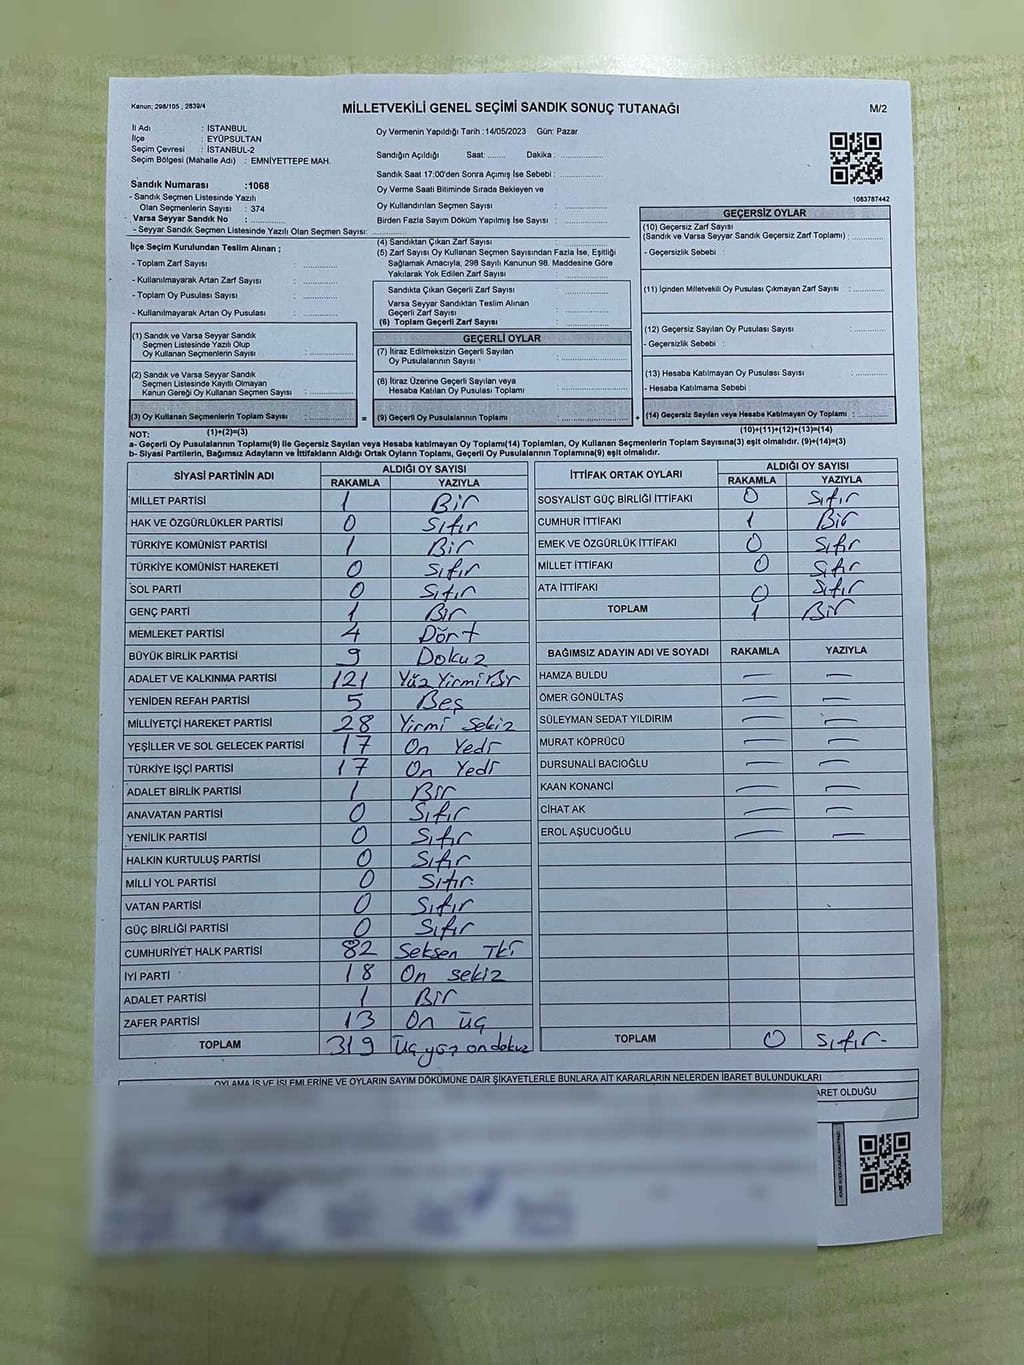 Kanun; 298/105 , 2839/4
MİLLETVEKİLİ GENEL SEÇİMİ SANDIK SONUÇ TUTANAĞI
M/2
İl Adı : İSTANBUL
İlçe : EYÜPSULTAN
Seçim Çevresi : İSTANBUL-2
Seçim Bölgesi (Mahalle Adı) : EMNİYETTEPE MAH.
Sandık Numarası :1068
- Sandık Seçmen Listesinde Yazılı
Olan Seçmenlerin Sayısı : 374
Varsa Seyyar Sandık No : ............
- Seyyar Sandık Seçmen Listesinde Yazılı Olan Seçmen Sayısı: ............
Oy Vermenin Yapıldığı Tarih :14/05/2023 Gün: Pazar
Sandığın Açıldığı Saat: ...... Dakika : ............
Sandık Saat 17:00'den Sonra Açımış İse Sebebi : ............
Oy Verme Saati Bitiminde Sırada Bekleyen ve
Oy Kullandırılan Seçmen Sayısı : ............
Birden Fazla Sayım Döküm Yapılmış İse Sayısı : ............
1083787442
İlçe Seçim Kurulundan Teslim Alınan ;
- Toplam Zarf Sayısı : ............
- Kullanılmayarak Artan Zarf Sayısı : ............
- Toplam Oy Pusulası Sayısı : ............
- Kullanılmayarak Artan Oy Pusulası : ............
(1) Sandık ve Varsa Seyyar Sandık
Seçmen Listesinde Yazılı Olup
Oy Kullanan Seçmenlerin Sayısı : ............
(2) Sandık ve Varsa Seyyar Sandık
Seçmen Listesinde Kayıtlı Olmayan
Kanun Gereği Oy Kullanan Seçmen Sayısı : ............
(3) Oy Kullanan Seçmenlerin Toplam Sayısı : ............
(1)+(2)=(3)
(4) Sandıktan Çıkan Zarf Sayısı : ............
(5) Zarf Sayısı Oy Kullanan Seçmen Sayısından Fazla İse, Eşitliği
Sağlamak Amacıyla, 298 Sayılı Kanunun 98. Maddesine Göre
Yakılarak Yok Edilen Zarf Sayısı : ............
Sandıkta Çıkan Geçerli Zarf Sayısı : ............
Varsa Seyyar Sandıktan Teslim Alınan
Geçerli Zarf Sayısı : ............
(6) Toplam Geçerli Zarf Sayısı : ............
GEÇERLİ OYLAR
(7) İtiraz Edilmeksizin Geçerli Sayılan
Oy Pusulalarının Sayısı : ............
(8) İtiraz Üzerine Geçerli Sayılan veya
Hesaba Katılan Oy Pusulası Toplamı : ............
= (9) Geçerli Oy Pusulalarının Toplamı : ............
GEÇERSİZ OYLAR
(10) Geçersiz Zarf Sayısı
(Sandık ve Varsa Seyyar Sandık Geçersiz Zarf Toplamı) : ............
- Geçersizlik Sebebi :
(11) İçinden Milletvekili Oy Pusulası Çıkmayan Zarf Sayısı : ............
(12) Geçersiz Sayılan Oy Pusulası Sayısı : ............
- Geçersizlik Sebebi :
(13) Hesaba Katılmayan Oy Pusulası Sayısı : ............
- Hesaba Katılmama Sebebi :
+ (14) Geçersiz Sayılan veya Hesaba Katılmayan Oy Toplamı : ............
(10)+(11)+(12)+(13)=(14)
NOT:
a- Geçerli Oy Pusulalarının Toplamı(9) ile Geçersiz Sayılan veya Hesaba katılmayan Oy Toplamı(14) Toplamları, Oy Kullanan Seçmenlerin Toplam Sayısına(3) eşit olmalıdır. (9)+(14)=(3)
b- Siyasi Partilerin, Bağımsız Adayların ve İttifakların Aldığı Ortak Oyların Toplamı, Geçerli Oy Pusulalarının Toplamına(9) eşit olmalıdır.
SİYASİ PARTİNİN ADI ALDIĞI OY SAYISI
RAKAMLA YAZIYLA
MİLLET PARTİSİ 1 Bir
HAK VE ÖZGÜRLÜKLER PARTİSİ 0 Sıfır
TÜRKİYE KOMÜNİST PARTİSİ 1 Bir
TÜRKİYE KOMÜNİST HAREKETİ 0 Sıfır
SOL PARTİ 0 Sıfır
GENÇ PARTİ 1 Bir
MEMLEKET PARTİSİ 4 Dört
BÜYÜK BİRLİK PARTİSİ 9 Dokuz
ADALET VE KALKINMA PARTİSİ 121 Yüz Yirmi Bir
YENİDEN REFAH PARTİSİ 5 Beş
MİLLİYETÇİ HAREKET PARTİSİ 28 Yirmi Sekiz
YEŞİLLER VE SOL GELECEK PARTİSİ 17 On Yedi
TÜRKİYE İŞÇİ PARTİSİ 17 On Yedi
ADALET BİRLİK PARTİSİ 1 Bir
ANAVATAN PARTİSİ 0 Sıfır
YENİLİK PARTİSİ 0 Sıfır
HALKIN KURTULUŞ PARTİSİ 0 Sıfır
MİLLİ YOL PARTİSİ 0 Sıfır
VATAN PARTİSİ 0 Sıfır
GÜÇ BİRLİĞİ PARTİSİ 0 Sıfır
CUMHURİYET HALK PARTİSİ 82 Seksen İki
İYİ PARTİ 18 On sekiz
ADALET PARTİSİ 1 Bir
ZAFER PARTİSİ 13 On üç
TOPLAM 319 Üç yüz on dokuz
İTTİFAK ORTAK OYLARI ALDIĞI OY SAYISI
RAKAMLA YAZIYLA
SOSYALİST GÜÇ BİRLİĞİ İTTİFAKI 0 Sıfır
CUMHUR İTTİFAKI 1 Bir
EMEK VE ÖZGÜRLÜK İTTİFAKI 0 Sıfır
MİLLET İTTİFAKI 0 Sıfır
ATA İTTİFAKI 0 Sıfır
TOPLAM 1 Bir
BAĞIMSIZ ADAYIN ADI VE SOYADI RAKAMLA YAZIYLA
HAMZA BULDU — —
ÖMER GÖNÜLTAŞ — —
SÜLEYMAN SEDAT YILDIRIM — —
MURAT KÖPRÜCÜ — —
DURSUNALİ BACIOĞLU — —
KAAN KONANCİ — —
CİHAT AK — —
EROL AŞUCUOĞLU — —
TOPLAM 0 Sıfır
OYLAMA İŞ VE İŞLEMLERİNE VE OYLARIN SAYIM DÖKÜMÜNE DAİR ŞİKAYETLERLE BUNLARA AİT KARARLARIN NELERDEN İBARET BULUNDUKLARI
ARET OLDUĞU